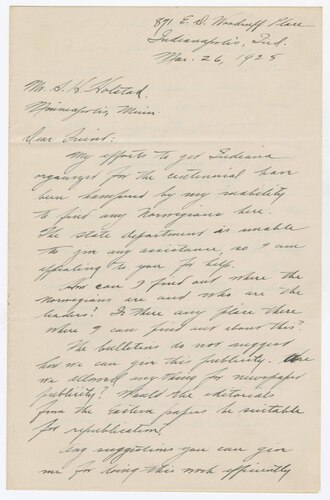 871 E. D. Woodruff Place
Indianapolis, Ind.
Mar. 26, 1925
Mr. S. H. Holstad.
Minneapolis, Minn.
Dear Friend:
My efforts to get Indiana
organized for the centennial have
been hampered by my inability
to find any Norwegians here.
The state department is unable
to give any assistance, so I am
appealing to you for help.
How can I find out where the
Norwegians are and who are the
leaders? Is there any place there
where I can find out about this?
The bulletins do not suggest
how we can give this publicity. Are
we allowed anything for newspaper
publicity? Would the editorials
from the Eastern papers be suitable
for republication?
Any suggestions you can give
me for doing this work efficiently